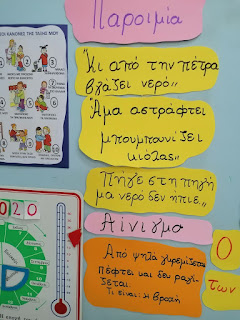 Παροιμία
ΟΙ ΚΑΝΟΝΕΣ ΤΗΣ ΤΑΞΗΣ ΜΟΥ
"Κι από την πέτρα
βγάζει νερό„
"Άμα αστράφτει
μπουμπουνίζει
κιόλας„
Πήγε στη πηγή
μα νερό δεν ήπιε„
Αίνιγμα
Από ψηλά γκρεμίζεται
πέφτει και δεν ραγί-
ζεται.
Τι είναι: η βροχή
Ο
των
020